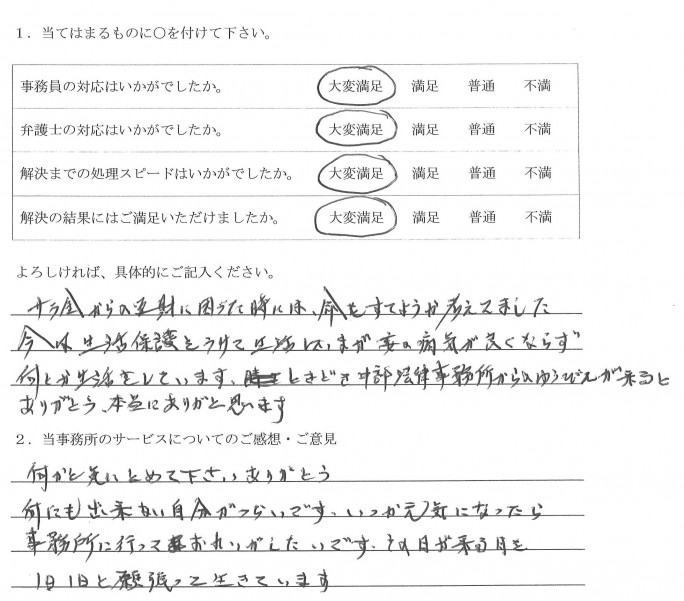 1．当てはまるものに○を付けて下さい。
事務員の対応はいかがでしたか。 大変満足 満足 普通 不満
弁護士の対応はいかがでしたか。 大変満足 満足 普通 不満
解決までの処理スピードはいかがでしたか。 大変満足 満足 普通 不満
解決の結果にはご満足いただけましたか。 大変満足 満足 普通 不満
よろしければ、具体的にご記入ください。
サラ金からの に困った時には、命もすてようか考えてました
今は生活保護をうけて生活していますが妻の病気が良くならず
何とか生活をしています、ときどき中許法律事務所からのゆうびんが来ると
ありがとう、本当にありがと思います
2．当事務所のサービスについてのご感想・ご意見
何かと気にとめて下さいありがとう
何にも出来ない自分がつらいです。いつか元気になったら
事務所に行っておれいがしたいです、その日が来る日を
1日1日と願張って生きています